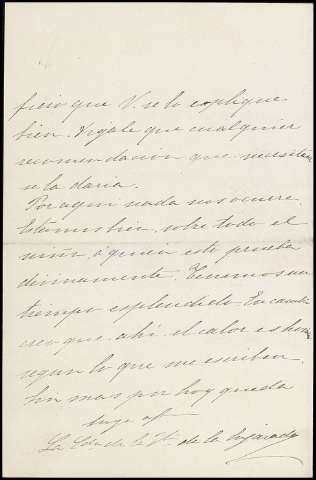 ficio que V. se lo esplique
bien. Digale que cualquier
recomendacion que necesitara
se la daria.
Por aqui nada nos ocurre
Estamos bien, sobre todo el
niño á quien esto prueba
divinamente. Tenemos un
tiempo esplendido. En cambio
creo que ahi el calor es
segun lo que me escriben.
Sin mas por hoy queda
suya af
La Cda de la Va de la